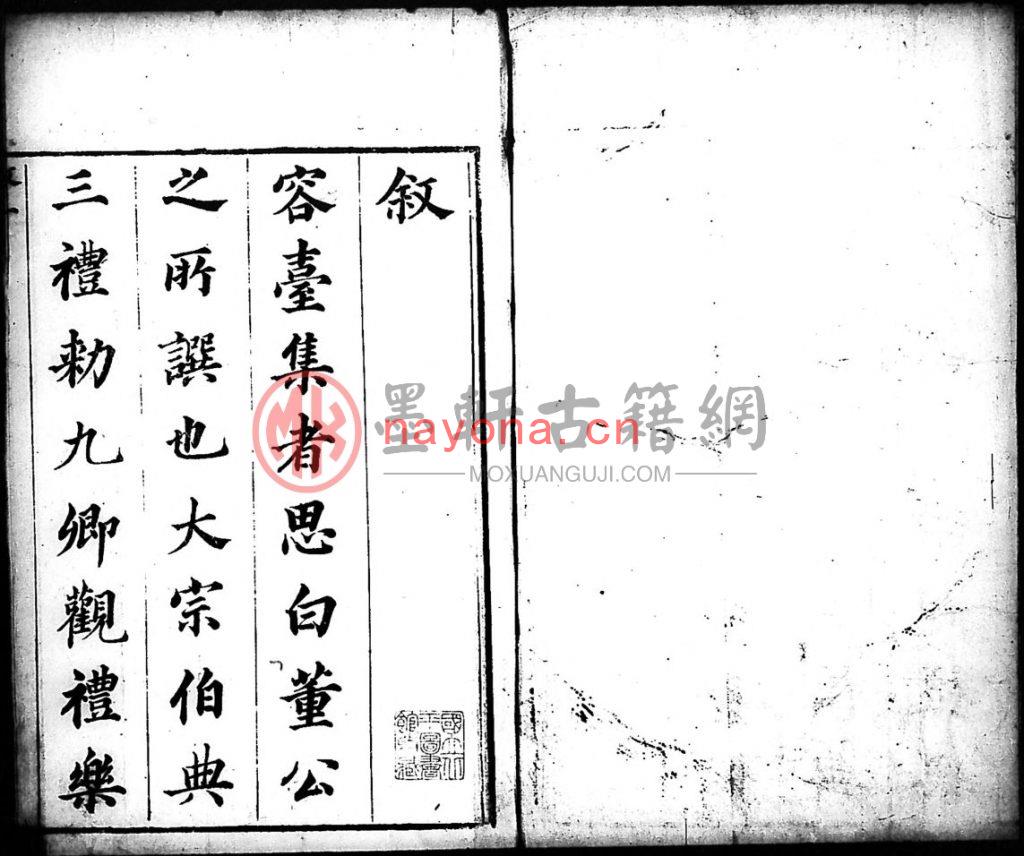 叙
容臺集者思白董公
之所譔也大宗伯典
三禮勅九卿觀禮樂
墨軒古籍網
nayona.cn
MOXUANGUJI.COM